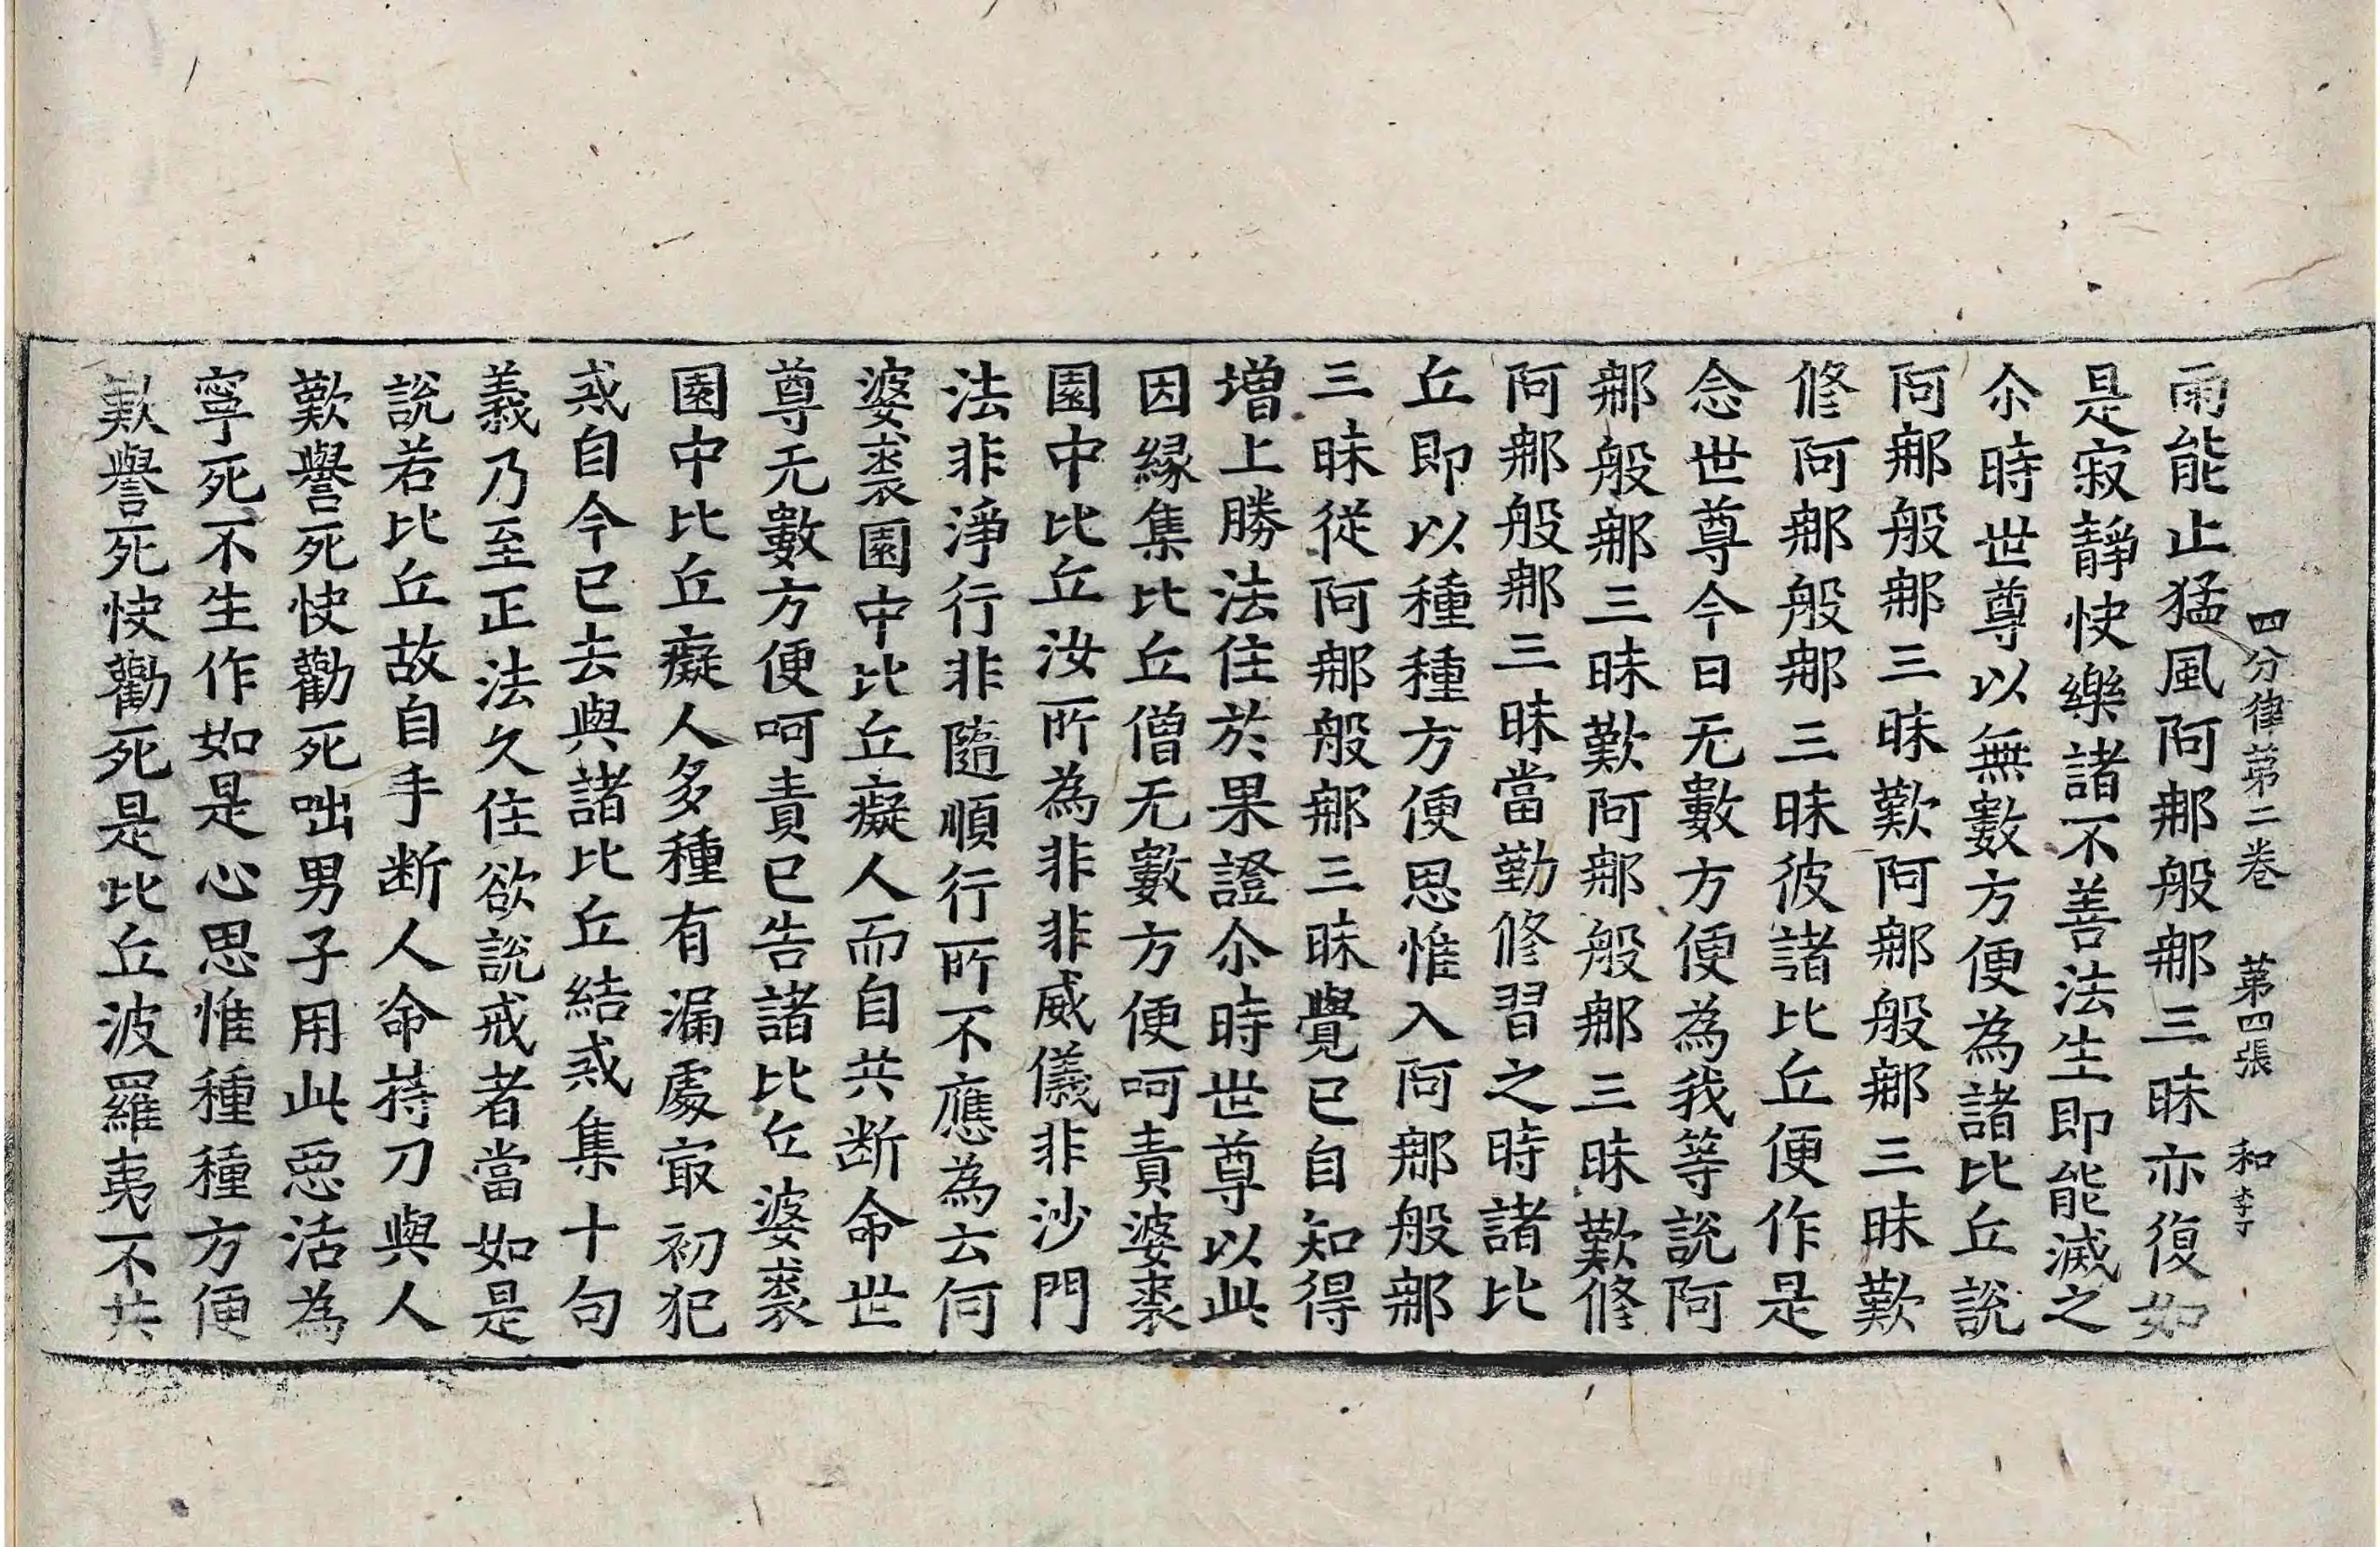 四分律苐二卷 苐四張 和 李丁
雨能止猛風阿那般那三昧亦復如
是寂靜快樂諸不善法生即能滅之
尒時世尊以無數方便為諸比丘說
阿那般那三昧歎阿那般那三昧歎
修阿那般那三昧彼諸比丘便作是
念世尊今日无數方便為我等說阿
那般那三昧歎阿那般那三昧歎修
阿那般那三昧當勤修習之時諸比
丘即以種種方便思惟入阿那般那
三昧從阿那般那三昧覺已自知得
增上勝法住於果證尒時世尊以此
因緣集比丘僧无數方便呵責婆裘
園中比丘汝所為非非威儀非沙門
法非淨行非隨順行所不應為云何
婆裘園中比丘癡人而自共断命世
尊无數方便呵責已告諸比丘婆裘
園中比丘癡人多種有漏處冣初犯
戒自今已去與諸比丘結戒集十句
義乃至正法久住欲說戒者當如是
說若比丘故自手断人命持刀與人
歎譽死快勸死咄男子用此惡活為
寧死不生作如是心思惟種種方便
歎譽死快勸死是比丘波羅夷不共